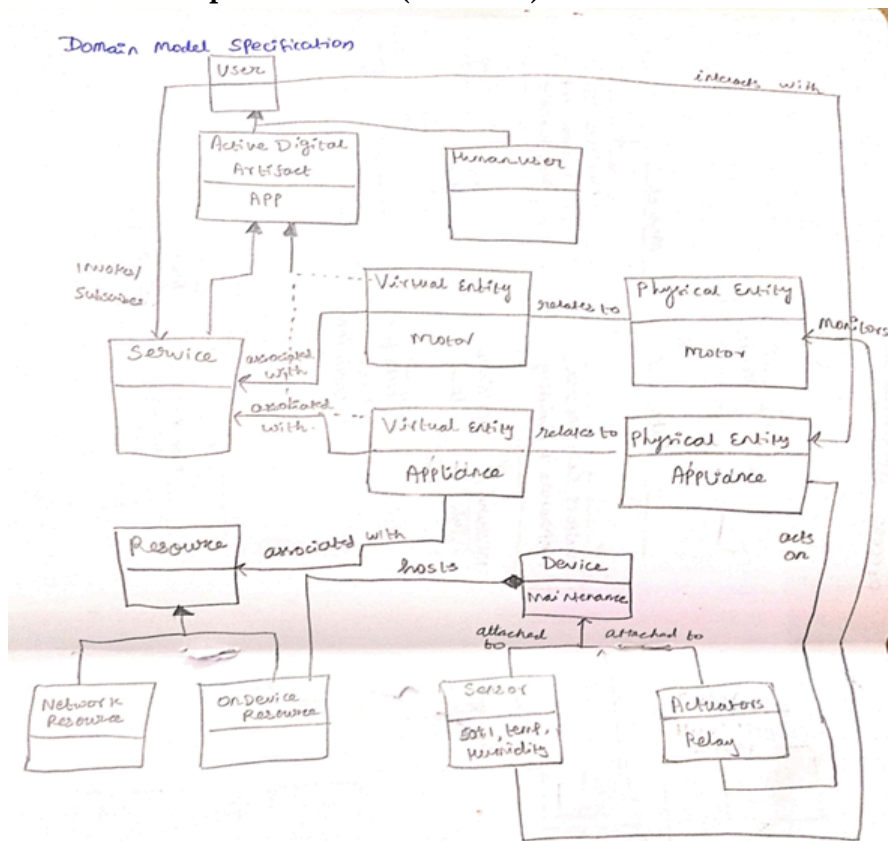 Domain Model Specification
User
interacts with
Active Digital
Artifact
APP
Human user
Invokes/
Subscribes
Virtual Entity
Motor
relates to
Physical Entity
Motor
Monitors
Service
associated
with
associated
with
Virtual Entity
Appliance
relates to
Physical Entity
Appliance
acts
on
Resource
associated with
hosts
Device
Maintenance
attached
to
attached to
Network
Resource
OnDevice
Resource
Sensor
soil, temp,
Humidity
Actuators
Relay